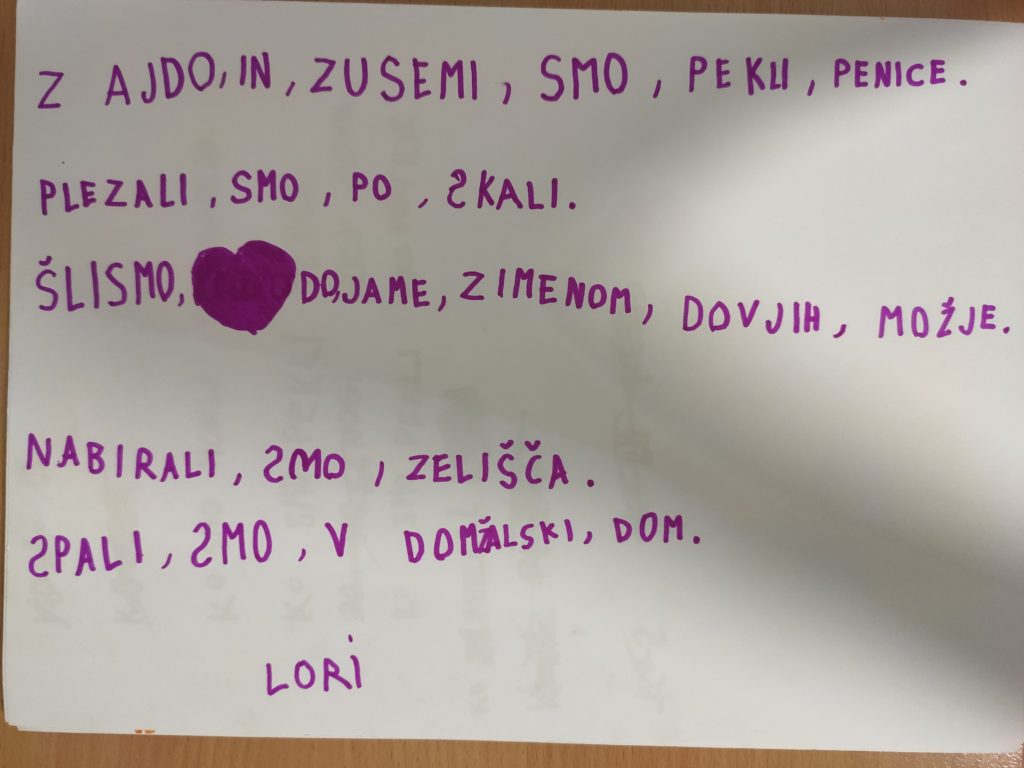 Z AJDO, IN, ZUSEMI, SMO, PEKLI, PENICE.
PLEZALI, SMO, PO, SKALI.
ŠLISMO, DOJAME, Z IMENOM, DOVJIH, MOŽJE.
NABIRALI, SMO, ZELIŠČA.
SPALI, SMO, V DOMŽALSKI, DOM.
LORI